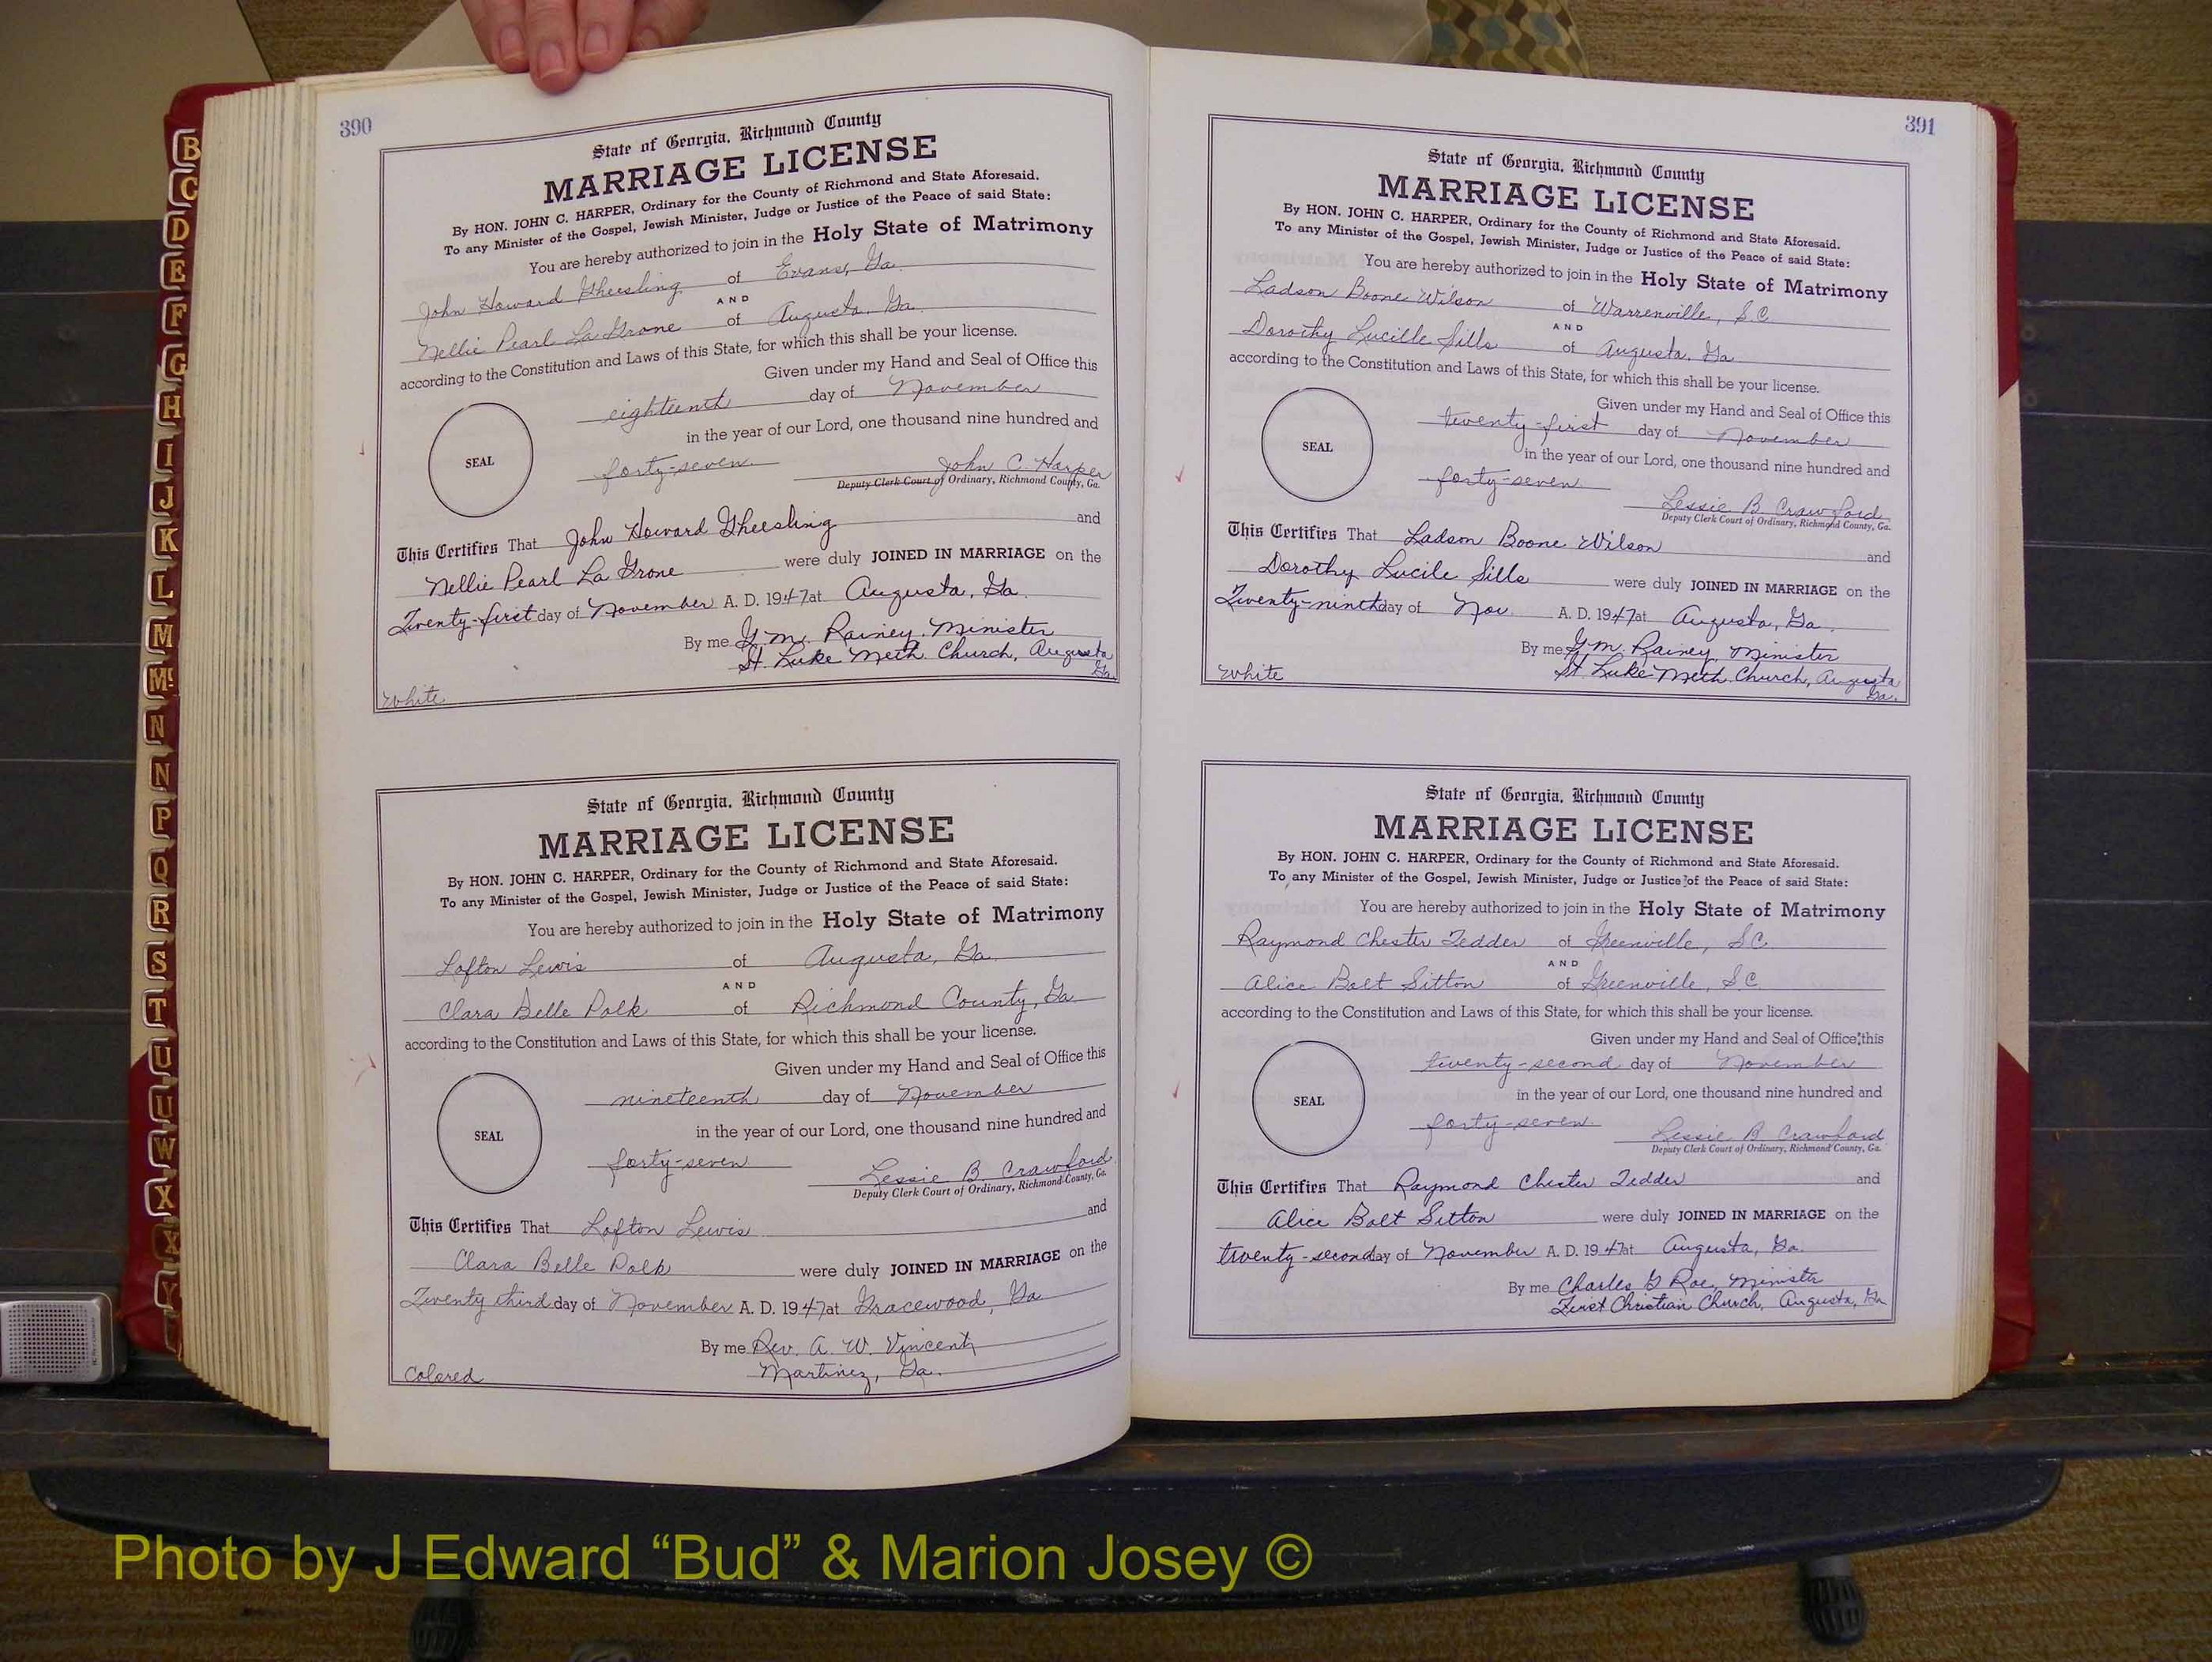 390
State of Georgia, Richmond County
MARRIAGE LICENSE
By HON. JOHN C. HARPER, Ordinary for the County of Richmond and State Aforesaid.
To any Minister of the Gospel, Jewish Minister, Judge or Justice of the Peace of said State:
You are hereby authorized to join in the Holy State of Matrimony
John Howard Gheesling of Evans, Ga.
AND
Nellie Pearl La Grone of Augusta, Ga.
according to the Constitution and Laws of this State, for which this shall be your license.
Given under my Hand and Seal of Office this
eighteenth day of November
in the year of our Lord, one thousand nine hundred and
SEAL
forty-seven John C. Harper
Deputy Clerk Court of Ordinary, Richmond County, Ga.
This Certifies That John Howard Gheesling and
Nellie Pearl La Grone were duly JOINED IN MARRIAGE on the
Twenty-first day of November A. D. 1947 at Augusta, Ga.
By me G. M. Rainey, Minister
St. Luke Meth. Church, Augusta
Ga.
White
State of Georgia, Richmond County
MARRIAGE LICENSE
By HON. JOHN C. HARPER, Ordinary for the County of Richmond and State Aforesaid.
To any Minister of the Gospel, Jewish Minister, Judge or Justice of the Peace of said State:
You are hereby authorized to join in the Holy State of Matrimony
Lofton Lewis of Augusta, Ga.
AND
Clara Belle Polk of Richmond County, Ga
according to the Constitution and Laws of this State, for which this shall be your license.
Given under my Hand and Seal of Office this
nineteenth day of November
in the year of our Lord, one thousand nine hundred and
SEAL
forty-seven Lessie B. Crawford
Deputy Clerk Court of Ordinary, Richmond County, Ga.
This Certifies That Lofton Lewis and
Clara Belle Polk were duly JOINED IN MARRIAGE on the
Twenty third day of November A. D. 1947 at Gracewood, Ga
By me Rev. A. W. Vincent
Martinez, Ga.
Colored
391
State of Georgia, Richmond County
MARRIAGE LICENSE
By HON. JOHN C. HARPER, Ordinary for the County of Richmond and State Aforesaid.
To any Minister of the Gospel, Jewish Minister, Judge or Justice of the Peace of said State:
You are hereby authorized to join in the Holy State of Matrimony
Ladson Boone Wilson of Warrenville, S.C.
AND
Dorothy Lucille Sills of Augusta, Ga
according to the Constitution and Laws of this State, for which this shall be your license.
Given under my Hand and Seal of Office this
twenty-first day of November
in the year of our Lord, one thousand nine hundred and
SEAL
forty-seven
Lessie B Crawford
Deputy Clerk Court of Ordinary, Richmond County, Ga.
This Certifies That Ladson Boone Wilson and
Dorothy Lucile Sills were duly JOINED IN MARRIAGE on the
Twenty-ninth day of Nov. A. D. 1947 at Augusta, Ga.
By me G. M. Rainey, Minister
St Luke Meth. Church, Augusta
Ga.
White
State of Georgia, Richmond County
MARRIAGE LICENSE
By HON. JOHN C. HARPER, Ordinary for the County of Richmond and State Aforesaid.
To any Minister of the Gospel, Jewish Minister, Judge or Justice of the Peace of said State:
You are hereby authorized to join in the Holy State of Matrimony
Raymond Chester Tedder of Greenville, S.C.
AND
Alice Bolt Sitton of Greenville, S.C.
according to the Constitution and Laws of this State, for which this shall be your license.
Given under my Hand and Seal of Office this
twenty-second day of November
in the year of our Lord, one thousand nine hundred and
SEAL
forty-seven
Lessie B Crawford
Deputy Clerk Court of Ordinary, Richmond County, Ga.
This Certifies That Raymond Chester Tedder and
Alice Bolt Sitton were duly JOINED IN MARRIAGE on the
twenty-second day of November A. D. 1947 at Augusta, Ga.
By me Charles G Roe, Minister
First Christian Church, Augusta, Ga
B
C
D
E
F
G
H
I
J
K
L
M
Mc
N
N
P
Q
R
S
T
U
U
W
X
X
Y
Photo by J Edward “Bud” & Marion Josey ©